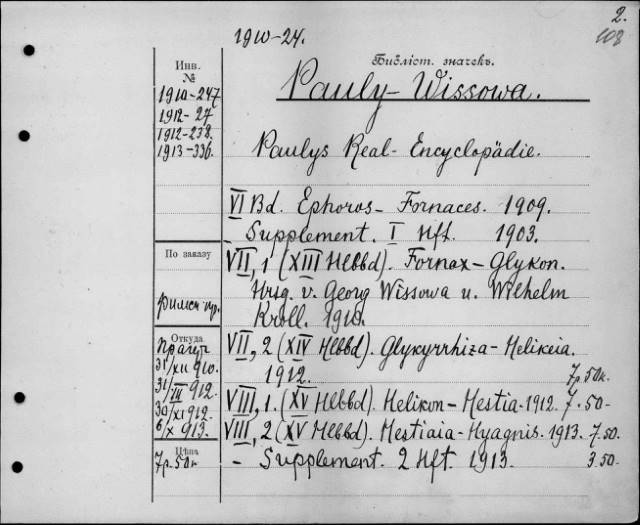 2.
108
1910-24.
Инв.
№
Библіот. значекъ.
1910-247
1912-27
1912-238.
1913-336.
Pauly-Wissowa.
Paulys Real-Encyclopädie.
VI Bd. Ephoros-Fornaces. 1909.
- Supplement. I Hft. 1903.
По заказу
VII, 1 (XIII Hlbbd). Fornax-Glykon.
Hrsg. v. Georg Wissowa u. Wilhelm
Kroll. 1910.
Откуда
31/XII 910.
31/III 912.
30/XI 912.
6/X 913.
VII, 2 (XIV Hlbbd). Glykyrrhiza-Helikeia.
1912. 7р.50к.
VIII, 1. (XV Hlbbd). Helikon-Hestia-1912. 7.50-
VIII, 2 (XV Hlbbd). Hestiaia-Hyagnis. 1913. 7.50.
Цѣна
7р.50к
- Supplement. 2 Hft. 1913. 3.50.